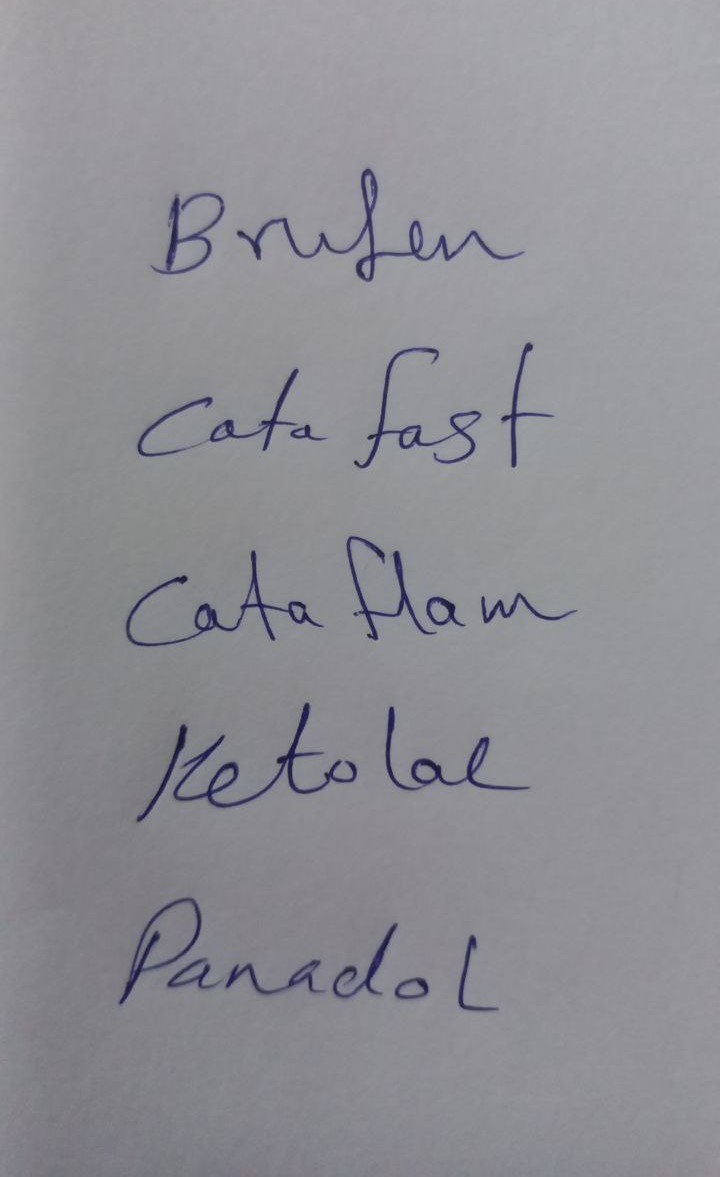 Brufen
Cata fast
Cata flam
Ketolac
Panadol